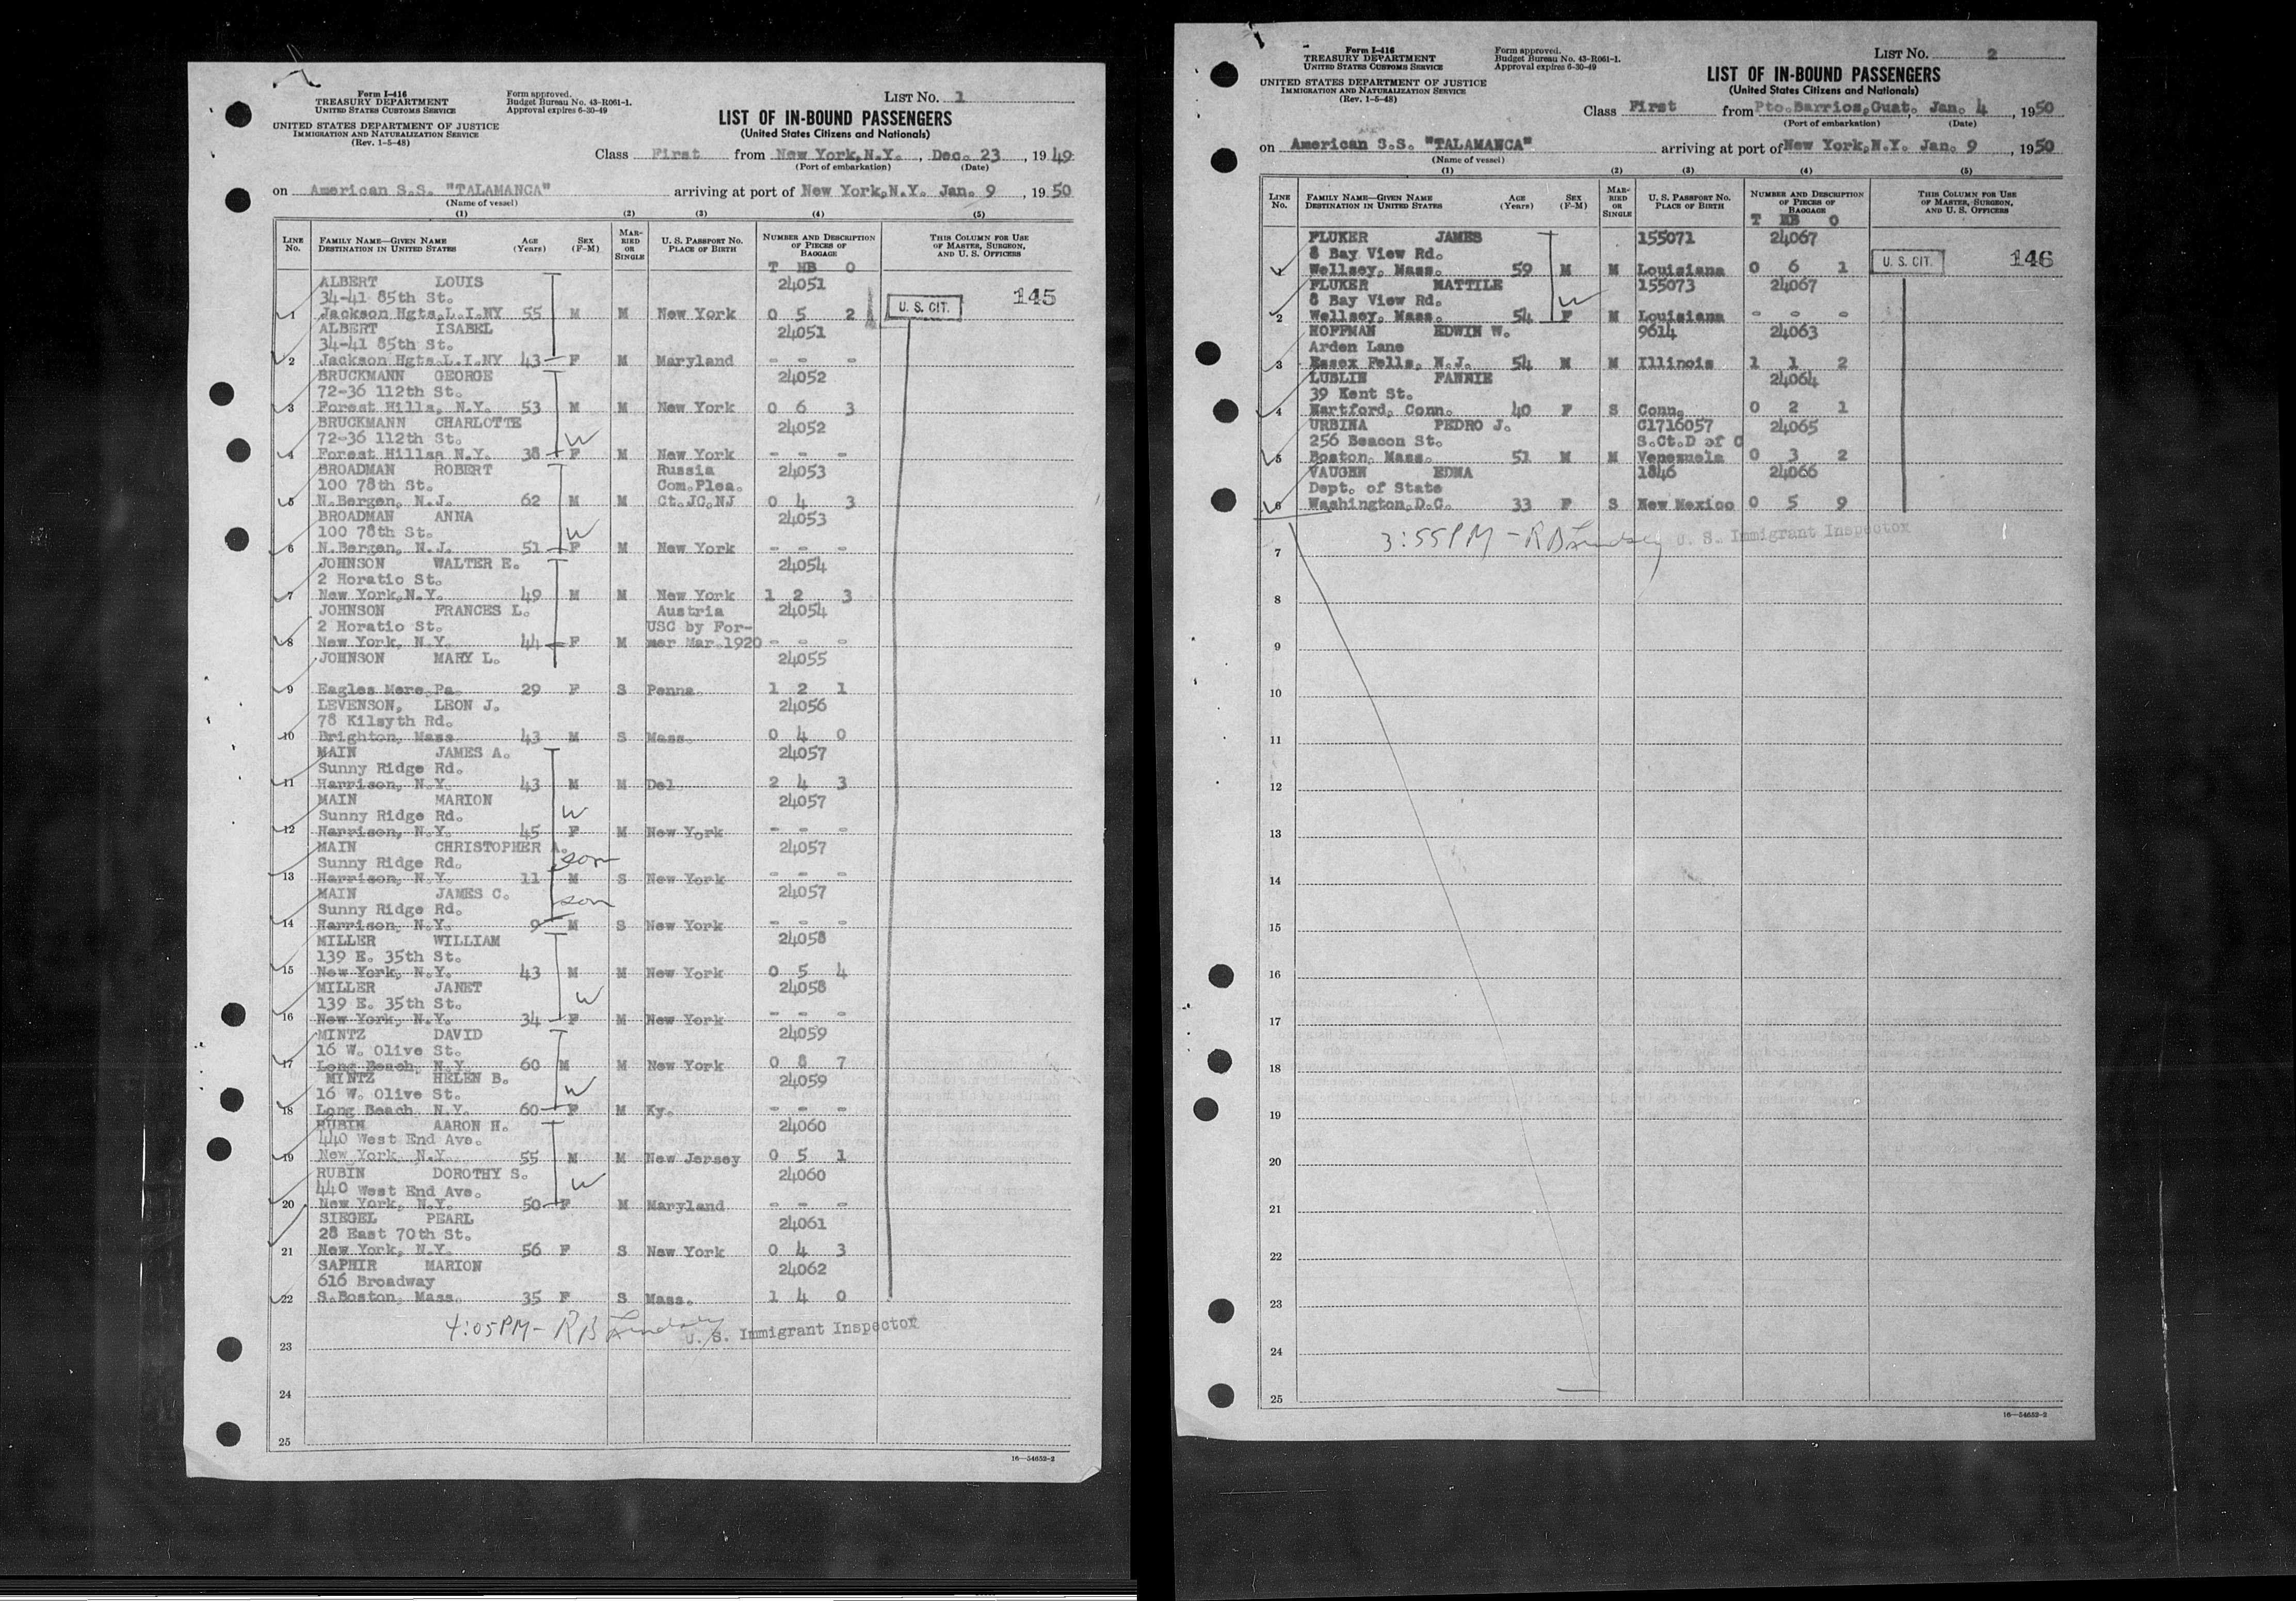 Form I-416
TREASURY DEPARTMENT
UNITED STATES CUSTOMS SERVICE
UNITED STATES DEPARTMENT OF JUSTICE
IMMIGRATION AND NATURALIZATION SERVICE
(Rev. 1-5-48)
Form approved.
Budget Bureau No. 43-R061-1.
Approval expires 6-30-49
LIST NO. 1
LIST OF IN-BOUND PASSENGERS
(United States Citizens and Nationals)
Class First from New York,N.Y., Dec. 23, 1949
(Port of embarkation) (Date)
on American S.S. "TALAMANCA" arriving at port of New York,N.Y. Jan. 9, 1950
(Name of vessel)
(1) (2) (3) (4) (5)
LINE NO. FAMILY NAME—GIVEN NAME DESTINATION IN UNITED STATES AGE (Years) SEX (F-M) MARRIED OR SINGLE U. S. PASSPORT NO. PLACE OF BIRTH NUMBER AND DESCRIPTION OF PIECES OF BAGGAGE THIS COLUMN FOR USE OF MASTER, SURGEON, AND U. S. OFFICERS
T HB O
ALBERT LOUIS 24051
34-41 85th St. U. S. CIT. 145
1 Jackson Hgts.L.I.NY 55 M M New York 0 5 2
ALBERT ISABEL 24051
34-41 85th St.
2 Jackson Hgts.L.I.NY 43 F M Maryland - - -
BRUCKMANN GEORGE 24052
72-36 112th St.
3 Forest Hills, N.Y. 53 M M New York 0 6 3
BRUCKMANN CHARLOTTE 24052
72-36 112th St. W
4 Forest Hills, N.Y. 38 F M New York - - -
BROADMAN ROBERT Russia 24053
100 78th St. Com.Plea.
5 N.Bergen, N.J. 62 M M Ct.JC,NJ 0 4 3
BROADMAN ANNA 24053
100 78th St. W
6 N.Bergen, N.J. 51 F M New York - - -
JOHNSON WALTER E. 24054
2 Horatio St.
7 New York,N.Y. 49 M M New York 1 2 3
JOHNSON FRANCES L. Austria 24054
2 Horatio St. USC by For-
8 New York, N.Y. 44 F M mer Mar.1920 - - -
JOHNSON MARY L. 24055
9 Eagles Mere,Pa. 29 F S Penna. 1 2 1
LEVENSON, LEON J. 24056
78 Kilsyth Rd.
10 Brighton, Mass. 43 M S Mass. 0 4 0
MAIN JAMES A. 24057
Sunny Ridge Rd.
11 Harrison, N.Y. 43 M M Del. 2 4 3
MAIN MARION 24057
Sunny Ridge Rd. W
12 Harrison, N.Y. 45 F M New York - - -
MAIN CHRISTOPHER A. 24057
Sunny Ridge Rd. son
13 Harrison, N.Y. 11 M S New York - - -
MAIN JAMES C. 24057
Sunny Ridge Rd. son
14 Harrison, N.Y. 9 M S New York - - -
MILLER WILLIAM 24058
139 E. 35th St.
15 New York, N.Y. 43 M M New York 0 5 4
MILLER JANET 24058
139 E. 35th St. W
16 New York, N.Y. 34 F M New York - - -
MINTZ DAVID 24059
16 W. Olive St.
17 Long Beach, N.Y. 60 M M New York 0 8 7
MINTZ HELEN B. 24059
16 W. Olive St. W
18 Long Beach, N.Y. 60 F M Ky. - - -
RUBIN AARON H. 24060
440 West End Ave.
19 New York, N.Y. 55 M M New Jersey 0 5 1
RUBIN DOROTHY S. 24060
440 West End Ave. W
20 New York, N.Y. 50 F M Maryland - - -
SIEGEL PEARL 24061
28 East 70th St.
21 New York, N.Y. 56 F S New York 0 4 3
SAPHIR MARION 24062
616 Broadway
22 S.Boston, Mass. 35 F S Mass. 1 4 0
4:05PM - RB Lindsly U. S. Immigrant Inspector
23
24
25
16—54652-2
Form I-416
TREASURY DEPARTMENT
UNITED STATES CUSTOMS SERVICE
UNITED STATES DEPARTMENT OF JUSTICE
IMMIGRATION AND NATURALIZATION SERVICE
(Rev. 1-5-48)
Form approved.
Budget Bureau No. 43-R061-1.
Approval expires 6-30-49
LIST NO. 2
LIST OF IN-BOUND PASSENGERS
(United States Citizens and Nationals)
Class First from Pto.Barrios,Guat. Jan. 4, 1950
(Port of embarkation) (Date)
on American S.S. "TALAMANCA" arriving at port of New York,N.Y. Jan. 9, 1950
(Name of vessel)
(1) (2) (3) (4) (5)
LINE NO. FAMILY NAME—GIVEN NAME DESTINATION IN UNITED STATES AGE (Years) SEX (F-M) MARRIED OR SINGLE U. S. PASSPORT NO. PLACE OF BIRTH NUMBER AND DESCRIPTION OF PIECES OF BAGGAGE THIS COLUMN FOR USE OF MASTER, SURGEON, AND U. S. OFFICERS
T HB O
FLUKER JAMES 155071 24067
8 Bay View Rd. U. S. CIT. 146
1 Wellsey, Mass. 59 M M Louisiana 0 6 1
FLUKER MATTILE 155073 24067
8 Bay View Rd. W
2 Wellsey, Mass. 54 F M Louisiana - - -
HOFFMAN EDWIN W. 9614 24063
Arden Lane
3 Essex Fells, N.J. 54 M M Illinois 1 1 2
LUBLIN FANNIE 24064
39 Kent St.
4 Hartford, Conn. 40 F S Conn. 0 2 1
URBINA PEDRO J. C1716057 24065
256 Beacon St. S.Ct.D of C
5 Boston, Mass. 51 M M Venezuela 0 3 2
VAUGHN EDMA 1846 24066
Dept. of State
6 Washington,D.C. 33 F S New Mexico 0 5 9
3:55PM - RB Lindsly U. S. Immigrant Inspector
7
8
9
10
11
12
13
14
15
16
17
18
19
20
21
22
23
24
25
16—54652-2